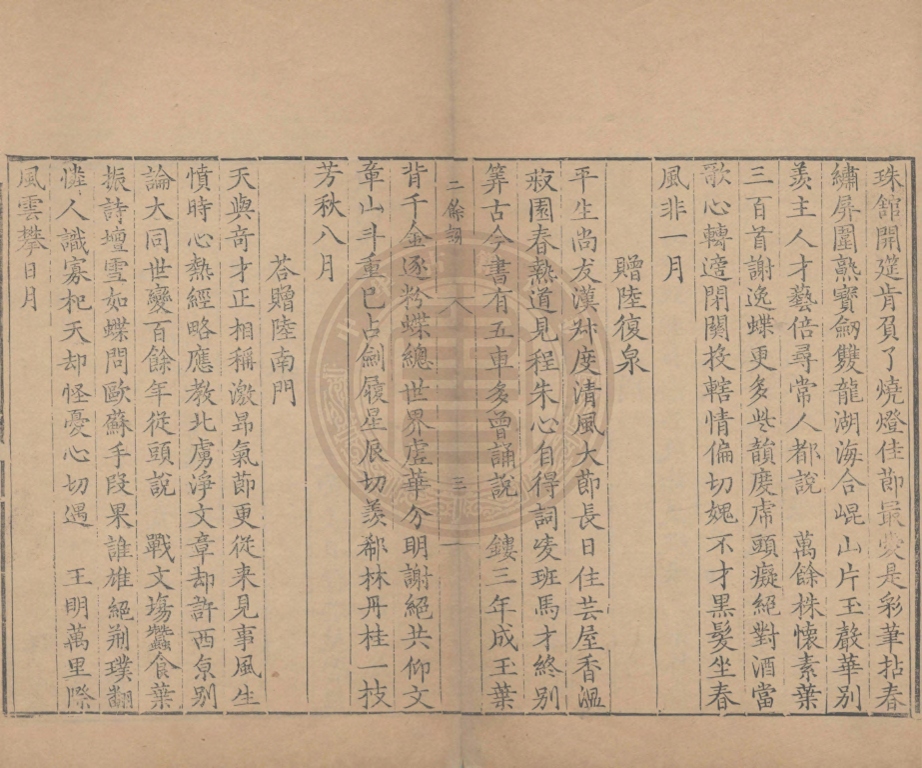 珠館開筵肯負了燒燈佳節最愛是彩華拈春
繡屏圍爇寶劒雙龍湖海合崐山片玉聲華別
羨主人才藝倍尋常人都說　萬餘株懷素葉
三百首謝逸蝶更多些韻度虎頭癡絕對酒當
歌心轉遠閉關投轄情偏切媿不才黑髮坐春
風非一月
贈陸復泉
平生尚友漢叔度清風大節長日住芸屋香溫
菽園春熱道見程朱心自得詞凌班馬才終別
筭古今書有五車多曾誦說　鏤三年成玉葉
二餘詞　八　三
背千金逐粉蝶總世界虛華分明謝絕共仰文
章山斗重已占劍履星辰切羨郄林丹桂一枝
芳秋八月
荅贈陸南門
天與奇才正相稱激昂氣節更從來見事風生
憤時心熱經略應教北虜淨文章却許西京別
論大同世變百餘年從頭說　戰文塲蠶食葉
振詩壇雪如蝶問歐蘇手段果誰雄絕荊璞翻
憐人識寡杞天却怪憂心切遇　王明萬里際
風雲攀日月